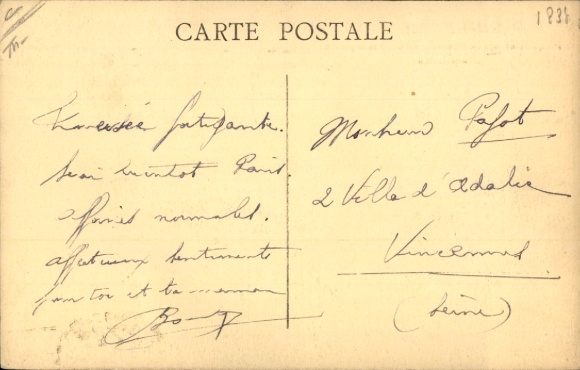 CARTE POSTALE
183
Traversée fatigante.
Serai bientôt Paris.
affaires normales.
affectueux sentiments
pour toi et ta maman
Monsieur Pafot
2 Villa d'Adalia
Vincennes
(Seine)